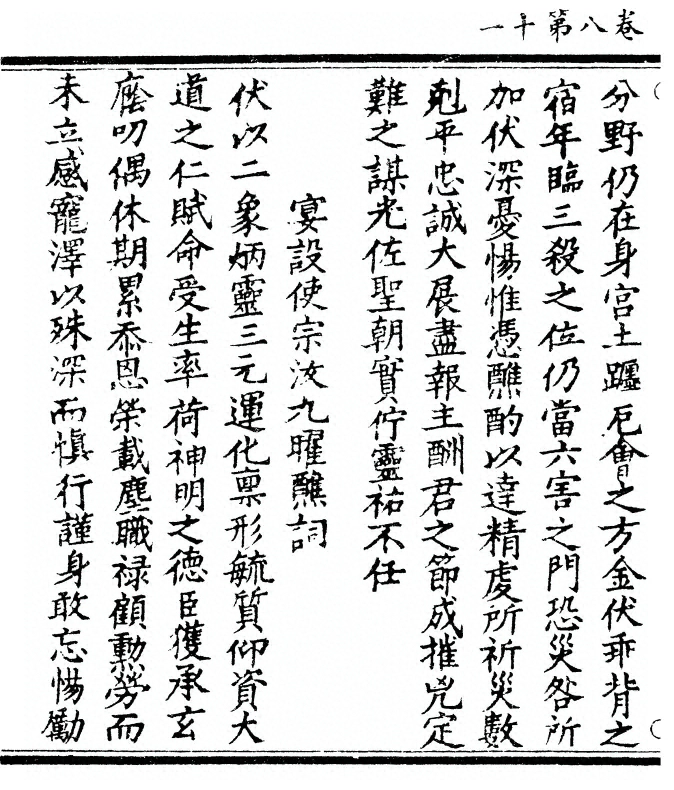 卷八第十一
分野仍在身宮土躔厄會之方金伏乖背之
宿年臨三殺之位仍當六害之門恐災咎所
加伏深憂惕惟憑醮酌以達精虔所祈災數
剋平忠誠大展盡報主酬君之節成摧兇定
難之謀光佐聖朝實佇靈祐不任
宴設使宗汝九曜醮詞
伏以二象炳靈三元運化禀形毓質仰資大
道之仁賦命受生率荷神明之德臣獲承玄
廕叨偶休期累忝恩榮載塵職禄顧勲勞而
未立感寵澤以殊深而慎行謹身敢忘惕勵